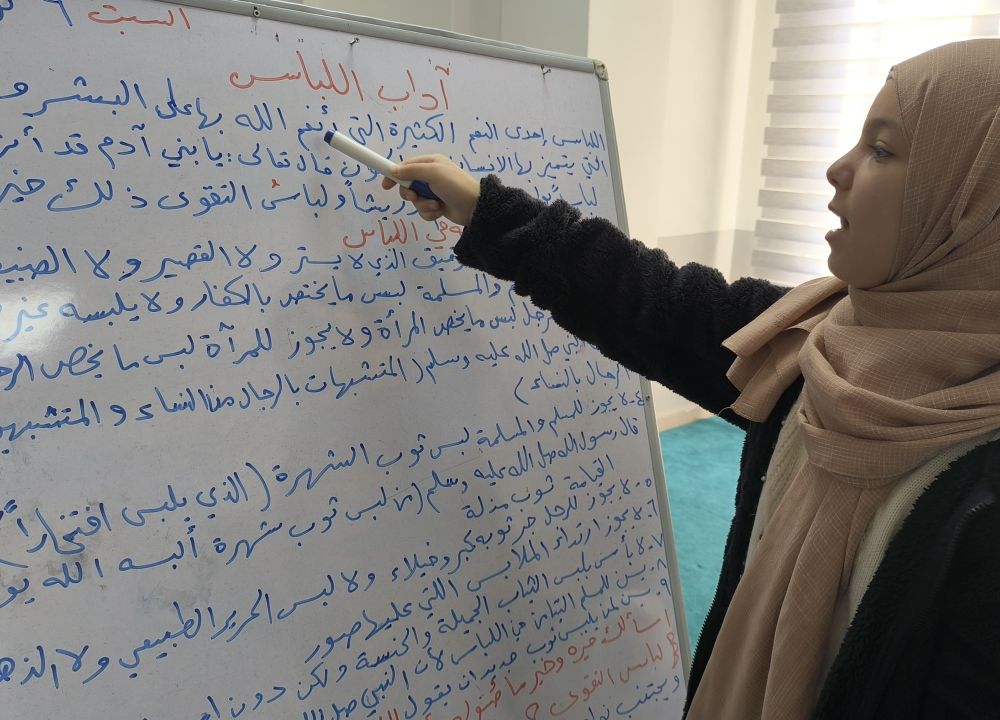 السبت ٦
آداب اللباس
اللباس إحدى النعم الكثيرة التي أنعم الله بها على البشر و
التي يتميز بها الانسان قال تعالى: يا بني آدم قد أنز
لباسًا وريشاً ولباسُ التقوى ذلك خير
في اللباس
الذي لا يستر ولا القصير ولا الضيق
والمسلمة لبس ما يختص بالكفار ولا يلبسه غير
لبس ما يخص المرأة ولا يجوز للمرآة لبس ما يخص الرجـ
صل الله عليه وسلم (المتشبهات بالرجال من النساء و المتشبهين
الرجال بالنساء)
٤- لا يجوز للمسلم والمسلمة لبس ثوب الشهرة (الذي يلبس افتخاراً
قال رسول الله صل الله عليه وسلم (من لبس ثوب شهرة ألبسه الله يو
القيامة ثوب مذلة
٥- لا يجوز للرجل جر ثوبه بكبر وخيلاء ولا لبس الحرير الطبيعي ولا الذهـ
٦- لا يجوز ارتداء الملابس اللتي عليها صور
٧- لا بأس بلبس الثياب الجميلة والحسنة ولكن دون
٨- يسن للمسلم التيامن في اللباس لأن النبي صل
٩- يسن لمن يلبس ثوب جديد أن يقول
اسألك خيره وخير ما صنع
لباس التقوى
ويجتنب